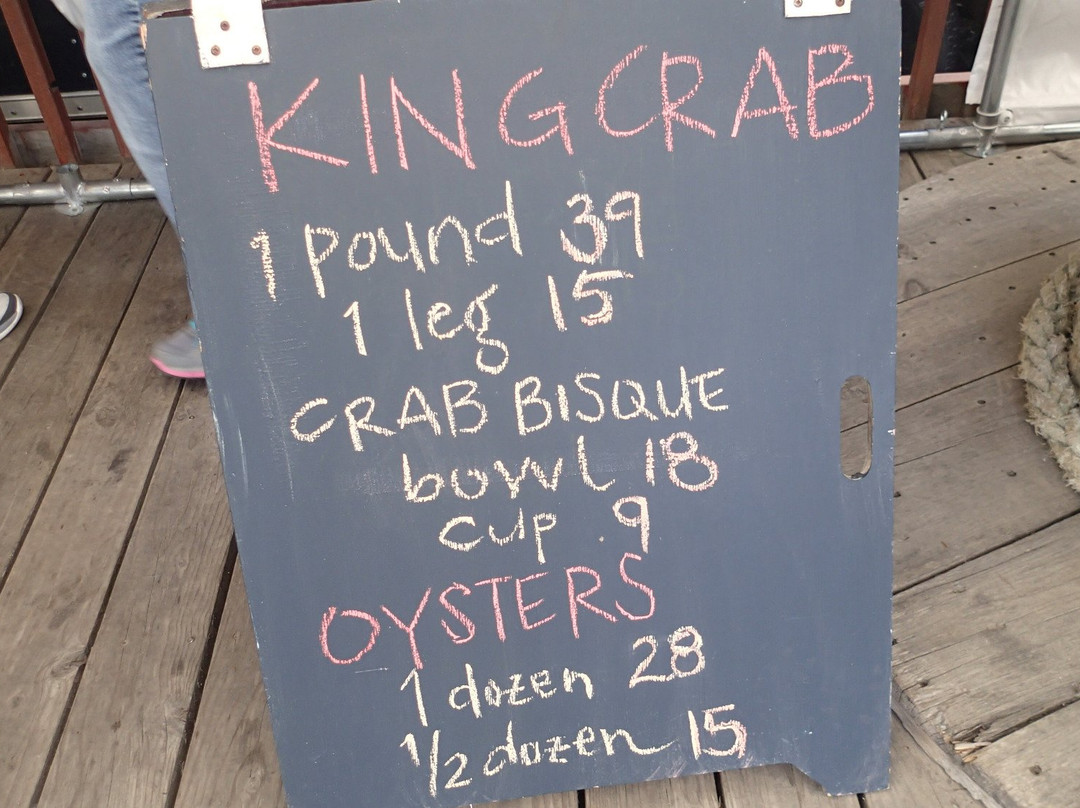 KING CRAB
1 pound 39
1 leg 15
CRAB BISQUE
bowl 18
cup 9
OYSTERS
1 dozen 28
1/2 dozen 15